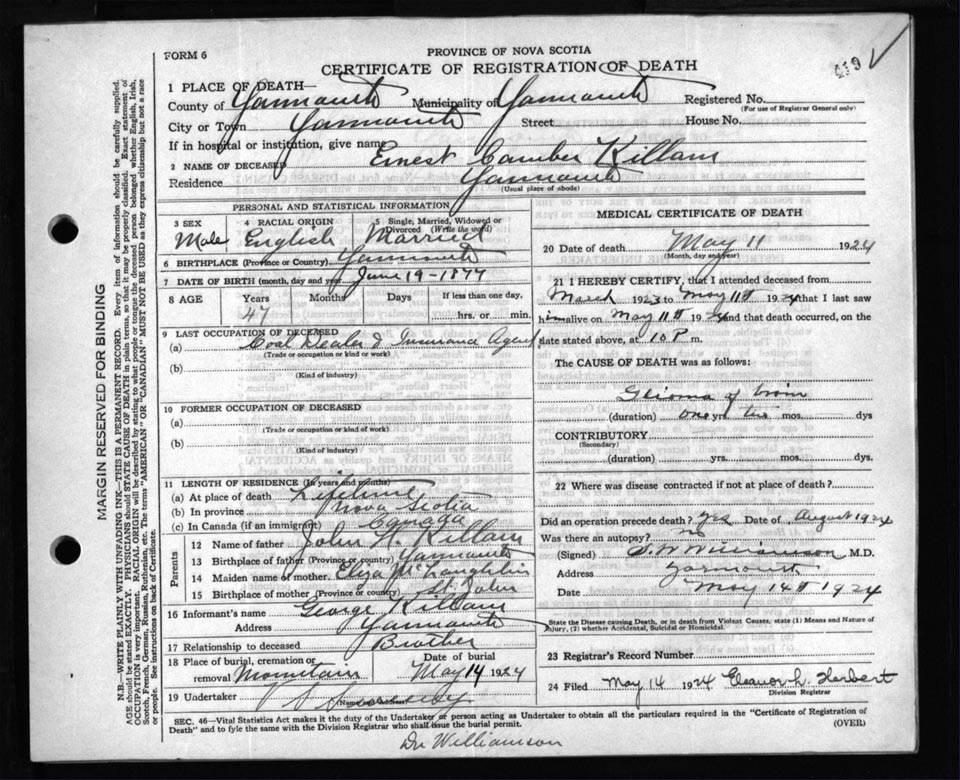 FORM 6
PROVINCE OF NOVA SCOTIA
CERTIFICATE OF REGISTRATION OF DEATH
419
1 PLACE OF DEATH—
County of Yarmouth Municipality of Yarmouth Registered No.
(For use of Registrar General only)
City or Town Yarmouth Street House No.
If in hospital or institution, give name
2 NAME OF DECEASED Ernest Camber Killam
Residence Yarmouth
(Usual place of abode)
PERSONAL AND STATISTICAL INFORMATION
3 SEX Male
4 RACIAL ORIGIN English
5 Single, Married, Widowed or Divorced (Write the word) Married
6 BIRTHPLACE (Province or Country) Yarmouth
7 DATE OF BIRTH (month, day and year) June 19-1877
8 AGE Years Months Days If less than one day,
47 hrs. or min.
9 LAST OCCUPATION OF DECEASED
(a) Coal Dealer & Insurance Agent
(Trade or occupation or kind or work)
(b)
(Kind of industry)
10 FORMER OCCUPATION OF DECEASED
(a)
(Trade or occupation or kind or work)
(b)
(Kind of industry)
11 LENGTH OF RESIDENCE (In years and months)
(a) At place of death Lifetime
(b) In province Nova Scotia
(c) In Canada (if an immigrant) Canada
Parents
12 Name of father John H. Killam
13 Birthplace of father (Province or country) Yarmouth
14 Maiden name of mother Eliza McLaughlin
15 Birthplace of mother (Province or country) St. John
16 Informant's name George Killam
Address Yarmouth
17 Relationship to deceased Brother
18 Place of burial, cremation or removal Mountain
Date of burial May 14 1924
19 Undertaker Sweeney
(Name and Address)
MEDICAL CERTIFICATE OF DEATH
20 Date of death May 11 1924
(Month, day and year)
21 I HEREBY CERTIFY, that I attended deceased from
March 1923 to May 11th 1924 that I last saw
him alive on May 11th 1924 and that death occurred, on the
date stated above, at 10 P. m.
THE CAUSE OF DEATH was as follows:
Glioma of brain
(duration) one yrs. two mos. dys
CONTRIBUTORY
(Secondary)
(duration) yrs. mos. dys.
22 Where was disease contracted if not at place of death?
Did an operation precede death? Yes Date of August 1924
Was there an autopsy? no
(Signed) S. W. Williamson M.D.
Address Yarmouth
Date May 14th 1924
State the Disease causing Death, or in death from Violent Causes, state (1) Means and Nature of
Injury, (2) whether Accidental, Suicidal or Homicidal.
23 Registrar's Record Number
24 Filed May 14 1924 Eleanor L. Herbert
Division Registrar
SEC. 46—Vital Statistics Act makes it the duty of the Undertaker or person acting as Undertaker to obtain all the particulars required in the "Certificate of Registration of
Death" and to fyle the same with the Division Registrar who shall issue the burial permit. (OVER)
Dr Williamson
MARGIN RESERVED FOR BINDING
N.B.—WRITE PLAINLY WITH UNFADING INK—THIS IS A PERMANENT RECORD. Every item of information should be carefully supplied.
AGE should be stated EXACTLY. PHYSICIANS should STATE CAUSE OF DEATH in plain terms, so that it may be properly classified. Exact statement of
OCCUPATION is very important. RACIAL ORIGIN will be described by stating to what people or tongue the deceased person belonged whether English, Irish,
Scotch, French, German, Russian, Ruthenian, etc. The terms "AMERICAN" or "CANADIAN" MUST NOT BE USED as they express citizenship but not a race
or people. See instructions on back of Certificate.